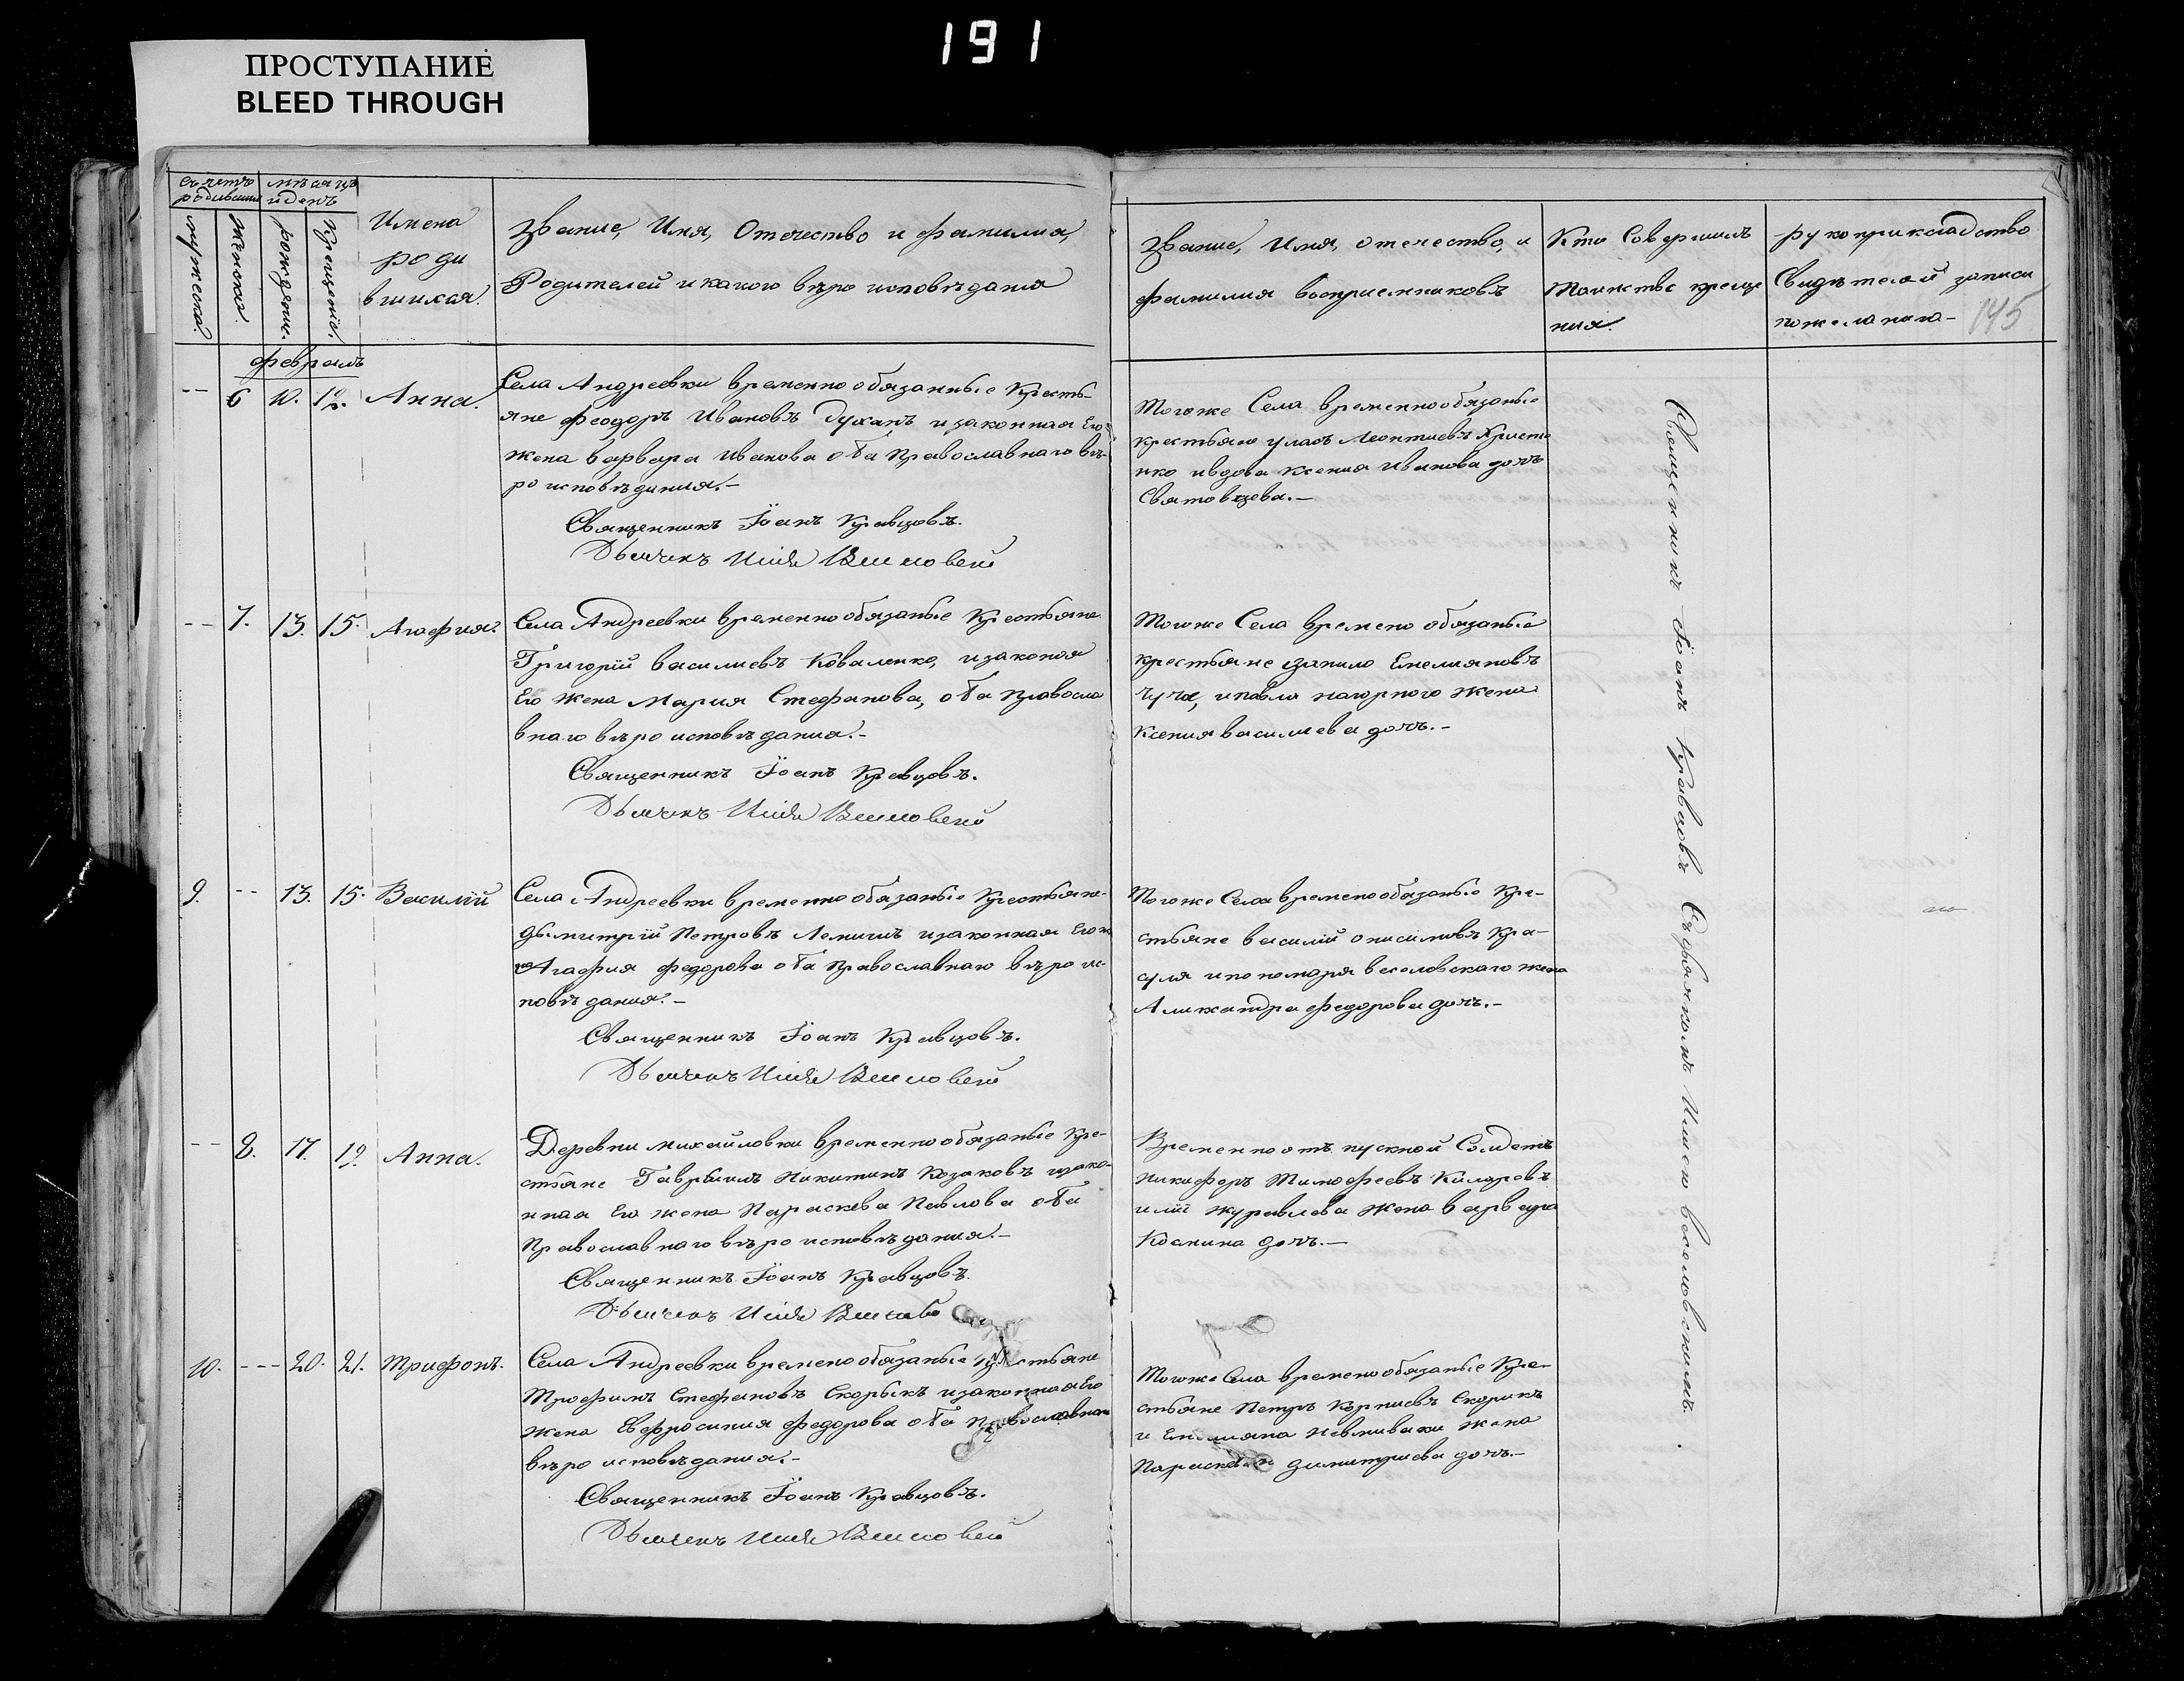 191
ПРОСТУПАНИЕ
BLEED THROUGH
счетъ
родившихся
мѣсяцъ
и день
мужеска.
женска.
рождение.
крещение.
Имена
роди
вшихся.
Звание, Имя, Отечество и фамилиа,
Родителей и какого вѣро исповѣдания
Звание, Имя, отечество, и
фамилия восприемниковъ
Кто Совершилъ
Таинство креще
ния.
рукоприкладство
Свидѣтелей записи
по желанию
145
февраль
-- 6 10. 12. Анна.
Села Андреевки временно обязанные Кресть-
яне Феодоръ Ивановъ Духанъ и законная Его
жена варвара Иванова оба Православнаго вѣ-
ро исповѣдания.-
Священникъ Іоанъ Кравцовъ.
Дьячекъ
Тогоже Села временно обязаные
крестьяне уласъ Леонтиевъ Христе
нко и вдова ксения Иванова дочь
Святовцева.-
-- 7. 13. 15. Агафия.
Села Андреевки временно обязаные Крестьяне
Григорій василиевъ Коваленко, и законая
Его жена Мария Стефанова, оба Правосла
внаго вѣро исповѣдания.-
Священникъ Іоанъ Кравцовъ.
Дьячекъ
Тогоже Села времено обязаные
крестьяне данило Емелияновъ
чуча, и павла нагорного жена
Ксения василиева дочь.-
9. -- 13. 15. Василій
Села Андреевки временно обязаные Крестьяне
дьмитрій Петровъ Лемишъ и законная Его же
на Агафия федорова оба Православнаго вѣро ис-
повѣдания.-
Священникъ Іоанъ Кравцовъ.
Дьячекъ
Тогоже Села времено обязаные Кре-
стьяне василій онисимовъ Кра-
суля и пономаря веселовскаго жена
Александра федорова дочь.-
-- 8. 17. 19. Анна.
Деревни михайловки временно обязаные Кре-
стьяне Гавріилъ Никитинъ Козаковъ и зако-
нная Его жена Параскева Павлова оба
Православнаго вѣро исповѣдания.-
Священникъ Іоанъ Кравцовъ.
Дьячекъ
Временно отъ пускной Солдатъ
никифоръ Тимофеевъ
иліи журавлева жена варвара
Космина дочь.-
10. --- 20. 21. Трифонъ.
Села Андреевки времено обязаные Крестьяне
Трофимъ Стефановъ Скорыкъ и законная Его
жена Евфросиния федорова оба Православнаго
вѣро исповѣдания.-
Священникъ Іоанъ Кравцовъ.
Дьячекъ
Тогоже Села времено обязаные Кре-
стьяне Петръ Корниевъ Скорикъ
и Емелияна жена
Параскева димитриева дочь.-
Священникъ Іоанъ Кравцовъ Съ дьячкомъ Илиею веселовскимъ.